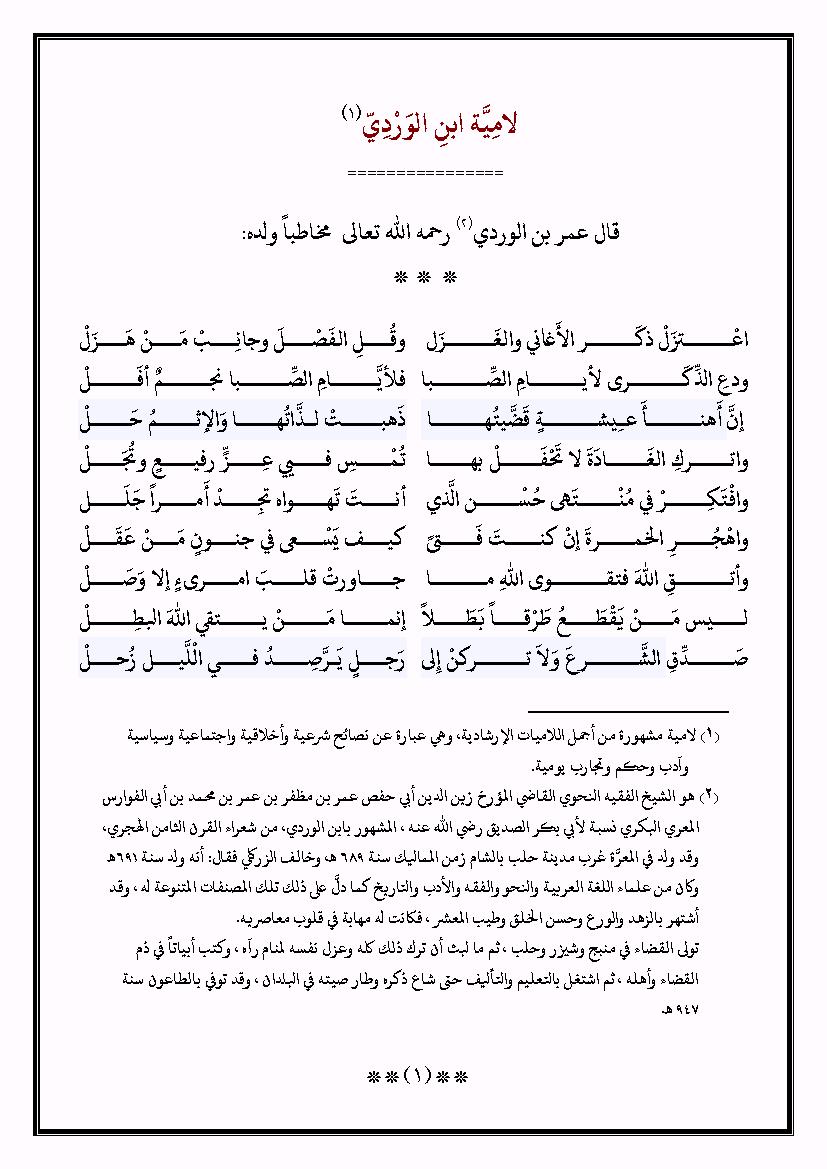 لامِيَّة ابنِ الوَرْدِيّ(١)
================
قال عمر بن الوردي(٢) رحمه الله تعالى مخاطباً ولده:
* * *
اعْتزَلْ ذكَر الأَغاني والغَزَل وقُلِ الفَصْلَ وجانِبْ مَنْ هَزَلْ
ودعِ الذِّكَرى لأيامِ الصِّبا فلأيَّامِ الصِّبا نجمٌ أفَلْ
إنَّ أَهنأَ عيشةٍ قَضَّيتُها ذَهبتْ لذَّاتُها وَالإثمُ حَلْ
واتركِ الغَادَةَ لا تَحْفَلْ بها تُمْسِ في عِزٍّ رفيعٍ وتُجَلْ
وافْتَكِرْ في مُنْتَهى حُسْنِ الَّذي أنتَ تَهواه تجِدْ أَمراً جَلَل
واهْجُرِ الخمرةَ إنْ كنتَ فتىً كيف يَسْعى في جنونٍ مَنْ عَقَلْ
وأتقِ اللهَ فتقوى اللهِ ما جاورتْ قلبَ امرىءٍ إلا وَصَلْ
ليس مَنْ يَقْطَعُ طَرْقاً بَطَلاً إنما مَنْ يتقي اللهَ البطِلْ
صَدِّقِ الشَّرعَ وَلاَ تركنْ إِلى رَجلٍ يَرَّصِدُ في الْلَّيل زُحلْ
(١) لامية مشهورة من أجمل اللاميات الإرشادية، وهي عبارة عن نصائح شرعية وأخلاقية واجتماعية وسياسية
وآدب وحكم وتجارب يومية.
(٢) هو الشيخ الفقيه النحوي القاضي المؤرخ زين الدين أبي حفص عمر بن مظفر بن عمر بن محمد بن أبي الفوارس
المعري البكري نسبة لأبي بكر الصديق رضي الله عنه ، المشهور بابن الوردي، من شعراء القرن الثامن الهجري،
وقد ولد في المعرَّة غرب مدينة حلب بالشام زمن المماليك سنة ٦٨٩ هـ، وخالف الزركلي فقال: أنه ولد سنة ٦٩١هـ
وكان من علماء اللغة العربية والنحو والفقه والأدب والتاريخ كما دلَّ على ذلك تلك المصنفات المتنوعة له ، وقد
أشتهر بالزهد والورع وحسن الخلق وطيب المعشر ، فكانت له مهابة في قلوب معاصريه.
تولى القضاء في منبج وشيزر وحلب ، ثم ما لبث أن ترك ذلك كله وعزل نفسه لمنام رآه ، وكتب أبياتاً في ذم
القضاء وأهله ، ثم اشتغل بالتعليم والتأليف حتى شاع ذكره وطار صيته في البلدان ، وقد توفي بالطاعون سنة
٩٤٧ هـ.
**(١)**